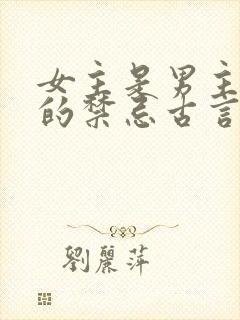 女主是男主
的禁忌古言
劉麗萍